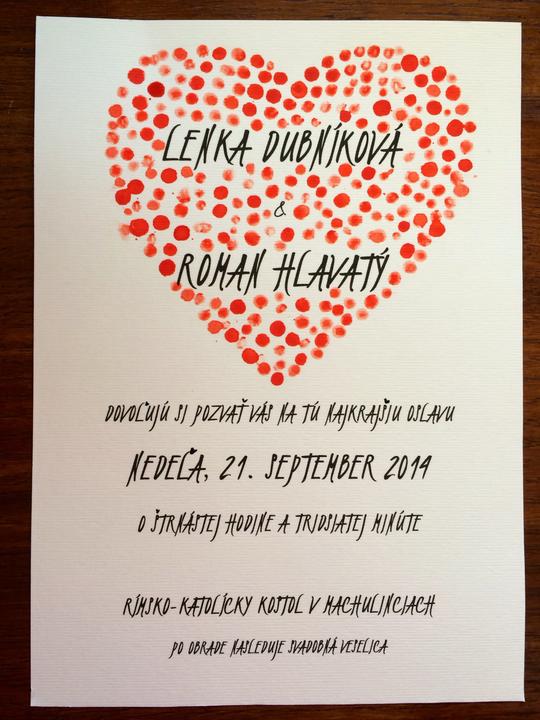 LENKA DUBNÍKOVÁ
&
ROMAN HLAVATÝ
DOVOĽUJÚ SI POZVAŤ VÁS NA TÚ NAJKRAJŠIU OSLAVU
NEDEĽA, 21. SEPTEMBER 2014
O ŠTRNÁSTEJ HODINE A TRIDSIATEJ MINÚTE
RÍMSKO-KATOLÍCKY KOSTOL V MACHULINCIACH
PO OBRADE NASLEDUJE SVADOBNÁ VESELICA